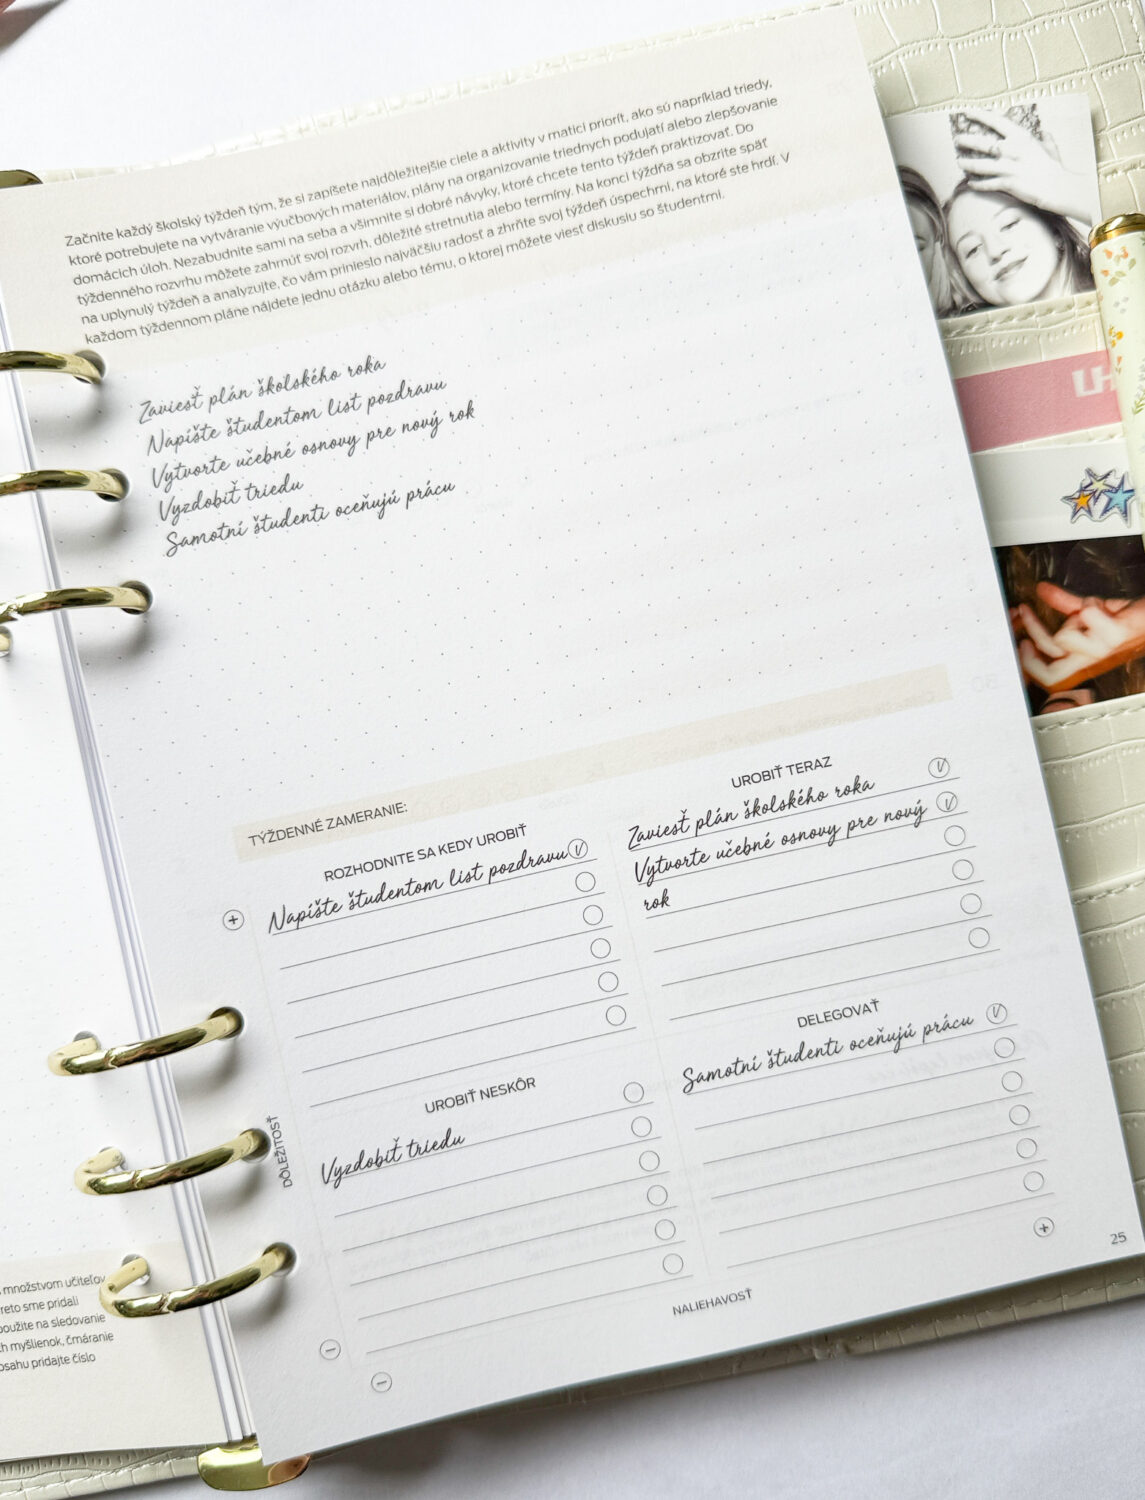 Začnite každý školský týždeň tým, že si zapíšete najdôležitejšie ciele a aktivity v matici priorít, ako sú napríklad triedy,
ktoré potrebujete na vytváranie výučbových materiálov, plány na organizovanie triednych podujatí alebo zlepšovanie
domácich úloh. Nezabudnite sami na seba a všimnite si dobré návyky, ktoré chcete tento týždeň praktizovať. Do
týždenného rozvrhu môžete zahrnúť svoj rozvrh, dôležité stretnutia alebo termíny. Na konci týždňa sa obzrite späť
na uplynulý týždeň a analyzujte, čo vám prinieslo najväčšiu radosť a zhrňte svoj týždeň úspechmi, na ktoré ste hrdí. V
každom týždennom pláne nájdete jednu otázku alebo tému, o ktorej môžete viesť diskusiu so študentmi.
Zaviesť plán školského roka
Napíšte študentom list pozdravu
Vytvorte učebné osnovy pre nový rok
Vyzdobiť triedu
Samotní študenti oceňujú prácu
TÝŽDENNÉ ZAMERANIE:
ROZHODNITE SA KEDY UROBIŤ
Napíšte študentom list pozdravu
UROBIŤ TERAZ
Zaviesť plán školského roka
Vytvorte učebné osnovy pre nový
rok
UROBIŤ NESKÔR
Vyzdobiť triedu
DELEGOVAŤ
Samotní študenti oceňujú prácu
DÔLEŽITOSŤ
NALIEHAVOSŤ
25
množstvom učiteľov
reto sme pridali
použite na sledovanie
h myšlienok, čmáranie
obsahu pridajte číslo